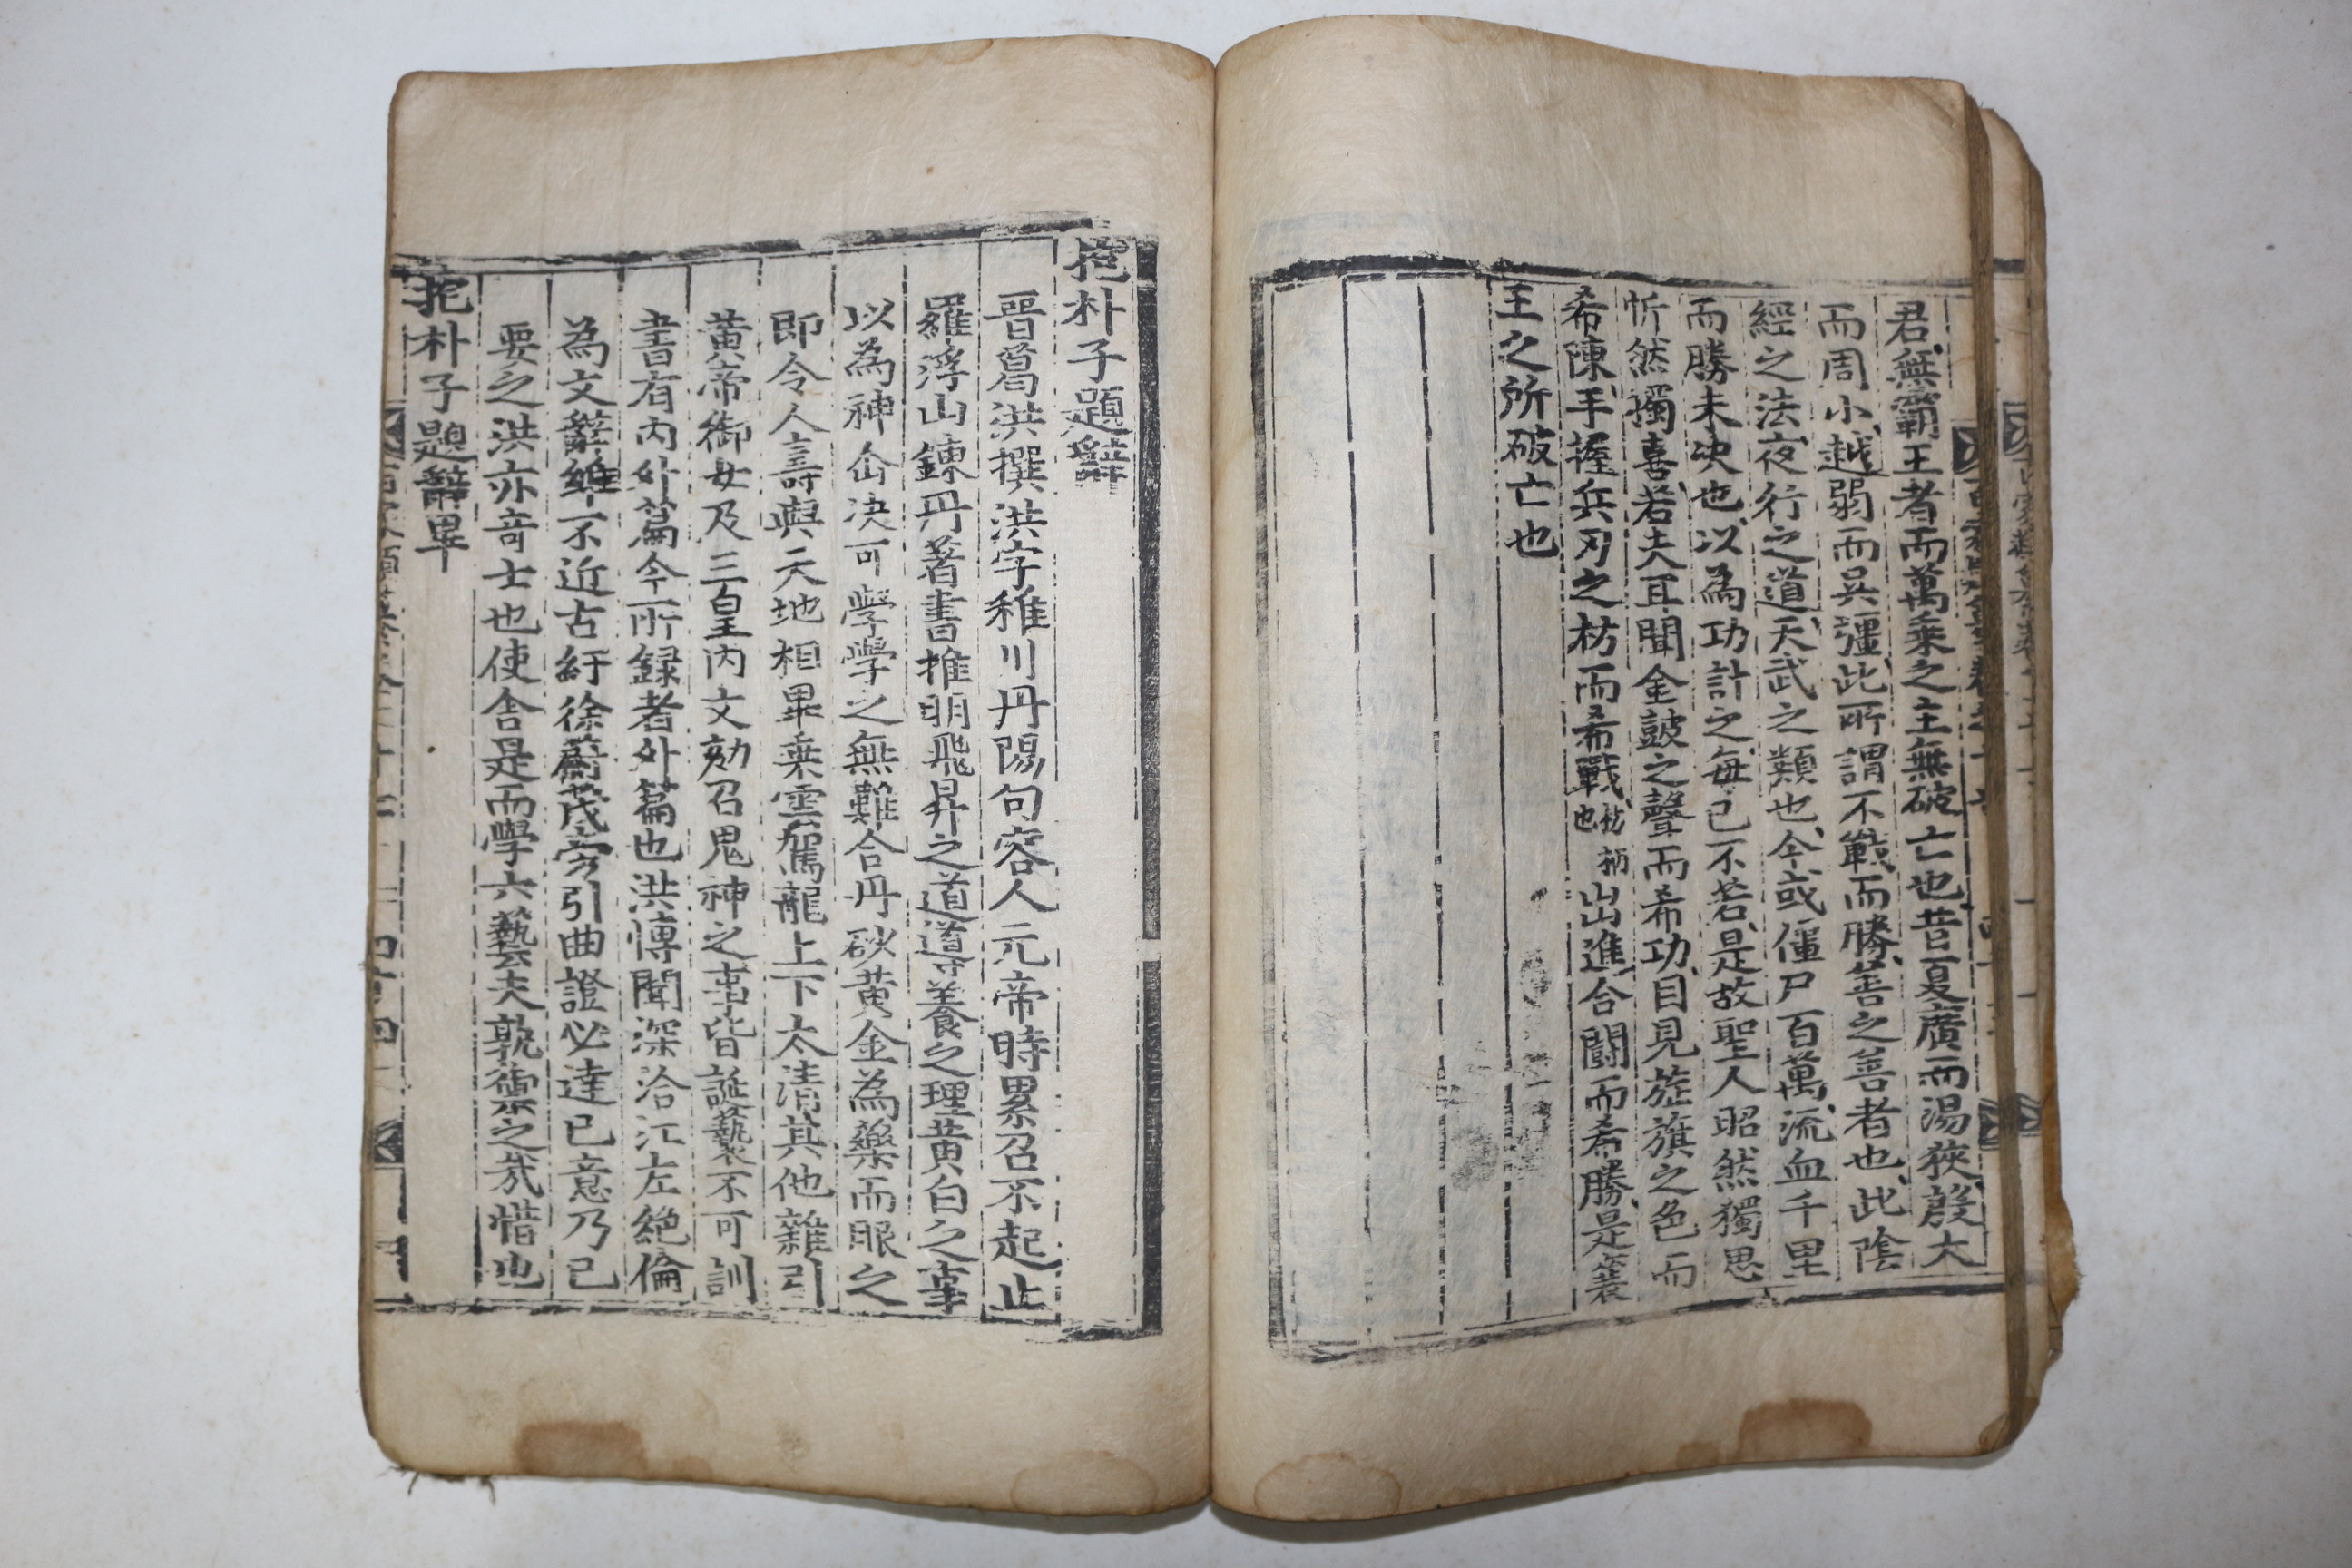 君無霸王者而萬乘之主無破亡也昔夏廣而湯狹殷大
而周小越弱而吳彊此所謂不戰而勝善之善者也此陰
經之法夜行之道天武之類也今或僵尸百萬流血千里
而勝未决也以為功計之每已不若是故聖人昭然獨思
忻然獨喜若夫耳聞金鼓之聲而希功目見旌旗之色而
希陳手握兵刃之枋而希戰枋柄也出進合鬪而希勝是襄
王之所破亡也
抱朴子題辭
晉葛洪撰洪字稚川丹陽句容人元帝時累召不起止
羅浮山鍊丹著書推明飛昇之道導養之理黄白之事
以為神仚决可學學之無難合丹砂黄金為藥而服之
即令人壽與天地相畢乘雲駕龍上下太清其他雜引
黄帝御女及三皇内文劾召鬼神之事皆誕褻不可訓
書有内外篇今所録者外篇也洪博聞深洽江左絕倫
為文辭雖不近古紆徐蔚茂旁引曲證必達已意乃已
要之洪亦竒士也使舎是而學六藝夫孰禦之㢤惜也
抱朴子題辭畢